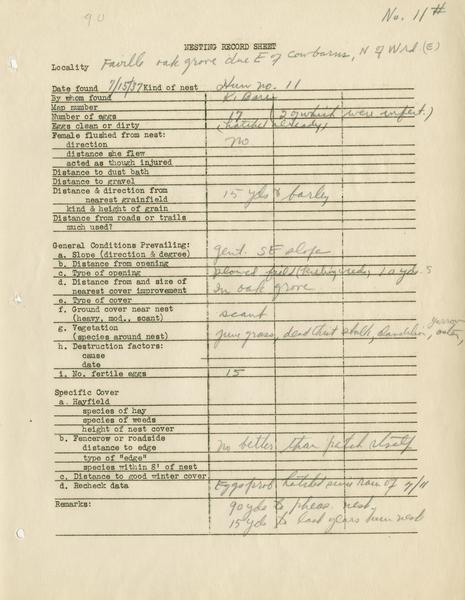 90
No. 11 #
NESTING RECORD SHEET
Locality Faville oak grove due E of cowbarns, N of Wrd (E)
Date found 7/15/37 Kind of nest Hun no. 11
By whom found
Map number
Number of eggs 17 (2 of which were infert.)
Eggs clean or dirty (hatched already)
Female flushed from nest: no
direction
distance she flew
acted as though injured
Distance to dust bath
Distance to gravel
Distance & direction from
nearest grainfield 15 yds to barley
kind & height of grain
Distance from roads or trails
much used?
General Conditions Prevailing:
a. Slope (direction & degree) gent. SE slope
b. Distance from opening
c. Type of opening plowed field 10 yds. S
d. Distance from and size of
nearest cover improvement In oak grove
e. Type of cover
f. Ground cover near nest
(heavy, mod., scant) scant
g. Vegetation
(species around nest) June grass, dead stalk, dandelion, yarrow, aster,
h. Destruction factors:
cause
date
i. No. fertile eggs 15
Specific Cover
a. Hayfield
species of hay
species of weeds
height of nest cover
b. Fencerow or roadside
distance to edge no better than patch itself
type of "edge"
species within 8' of nest
c. Distance to good winter cover
d. Recheck data Eggs prob. hatched since rain of 7/11
Remarks: 90 yds to pheas. nest
15 yds to last years hun nest